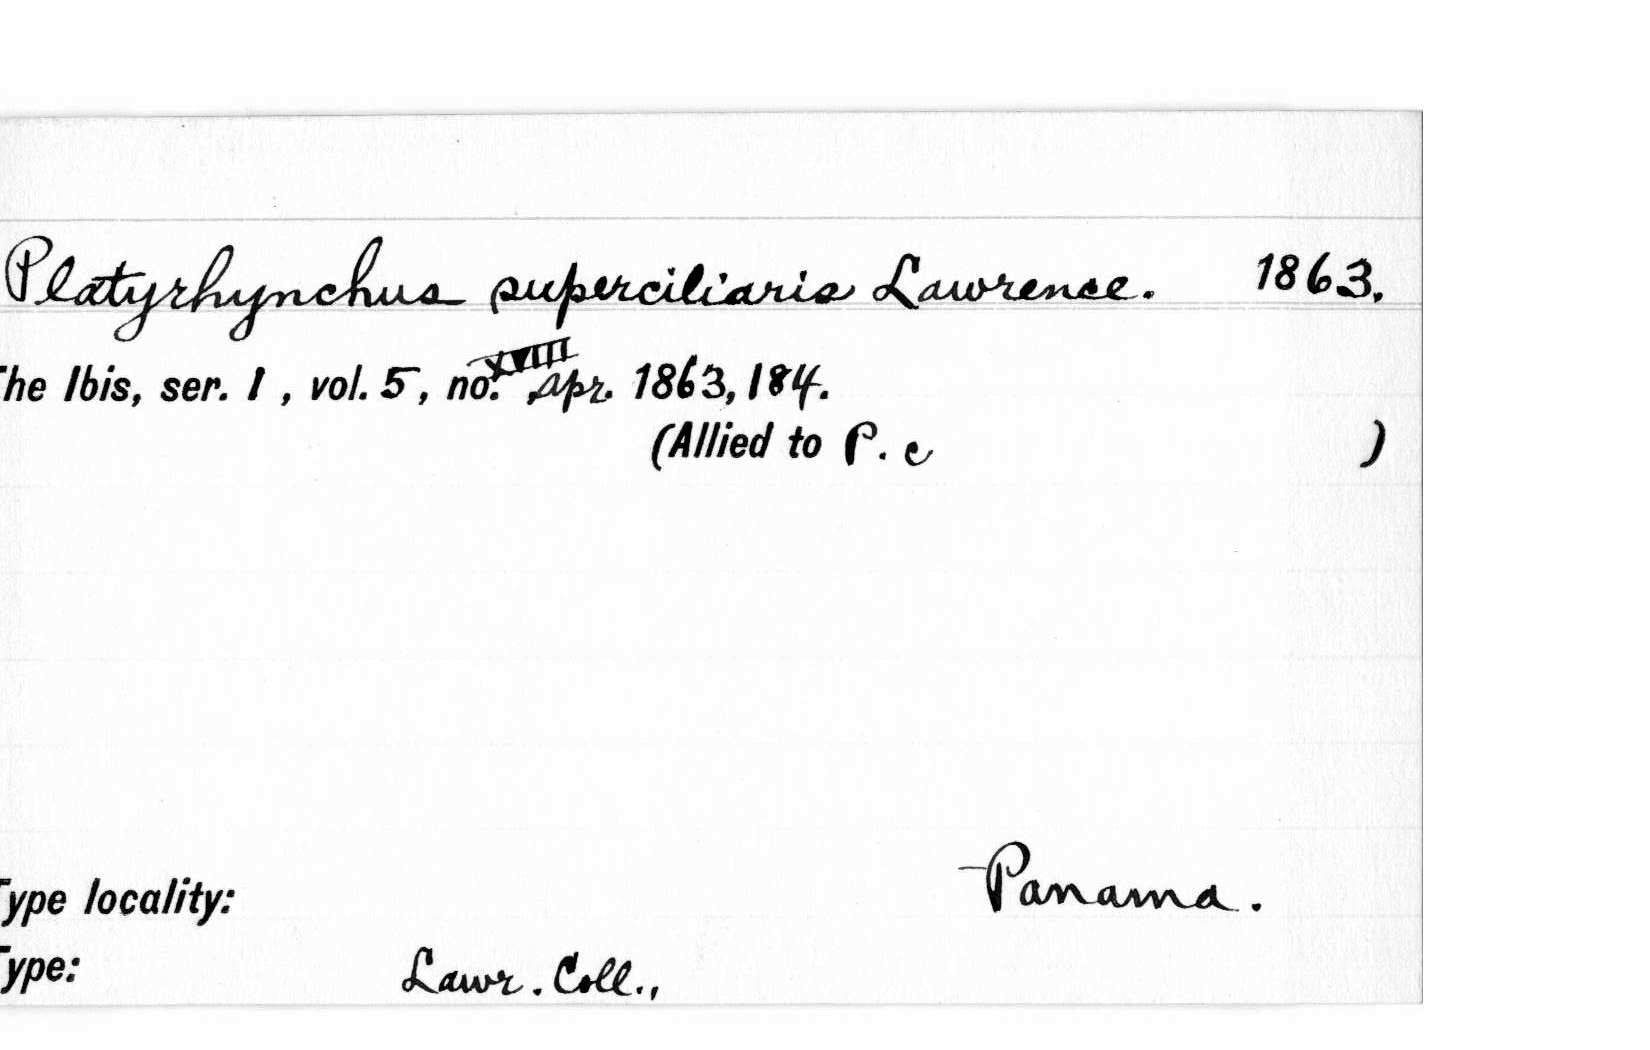 Platyrhynchus superciliaris Lawrence. 1863.
he Ibis, ser. 1, vol. 5, no. XVIII, Apr. 1863, 184.
(Allied to P. c )
Type locality: Panama.
Type: Lawr. Coll.,